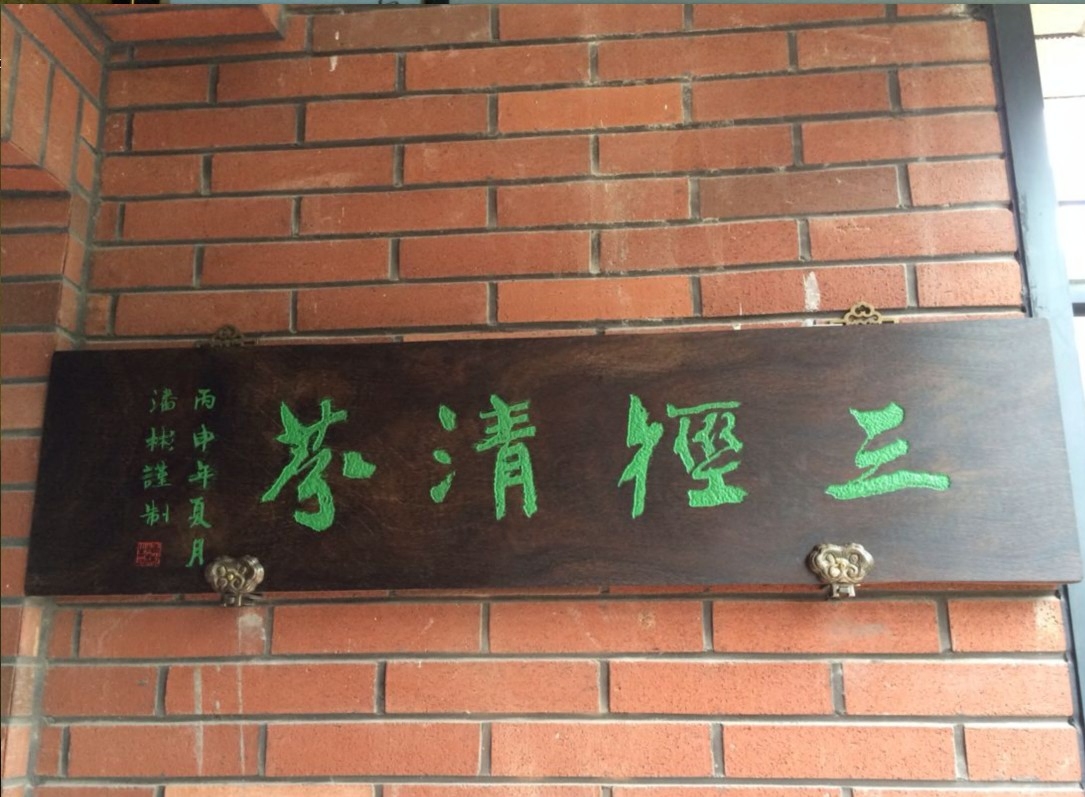 三徑清芬
丙申年夏月
潘彬謹制